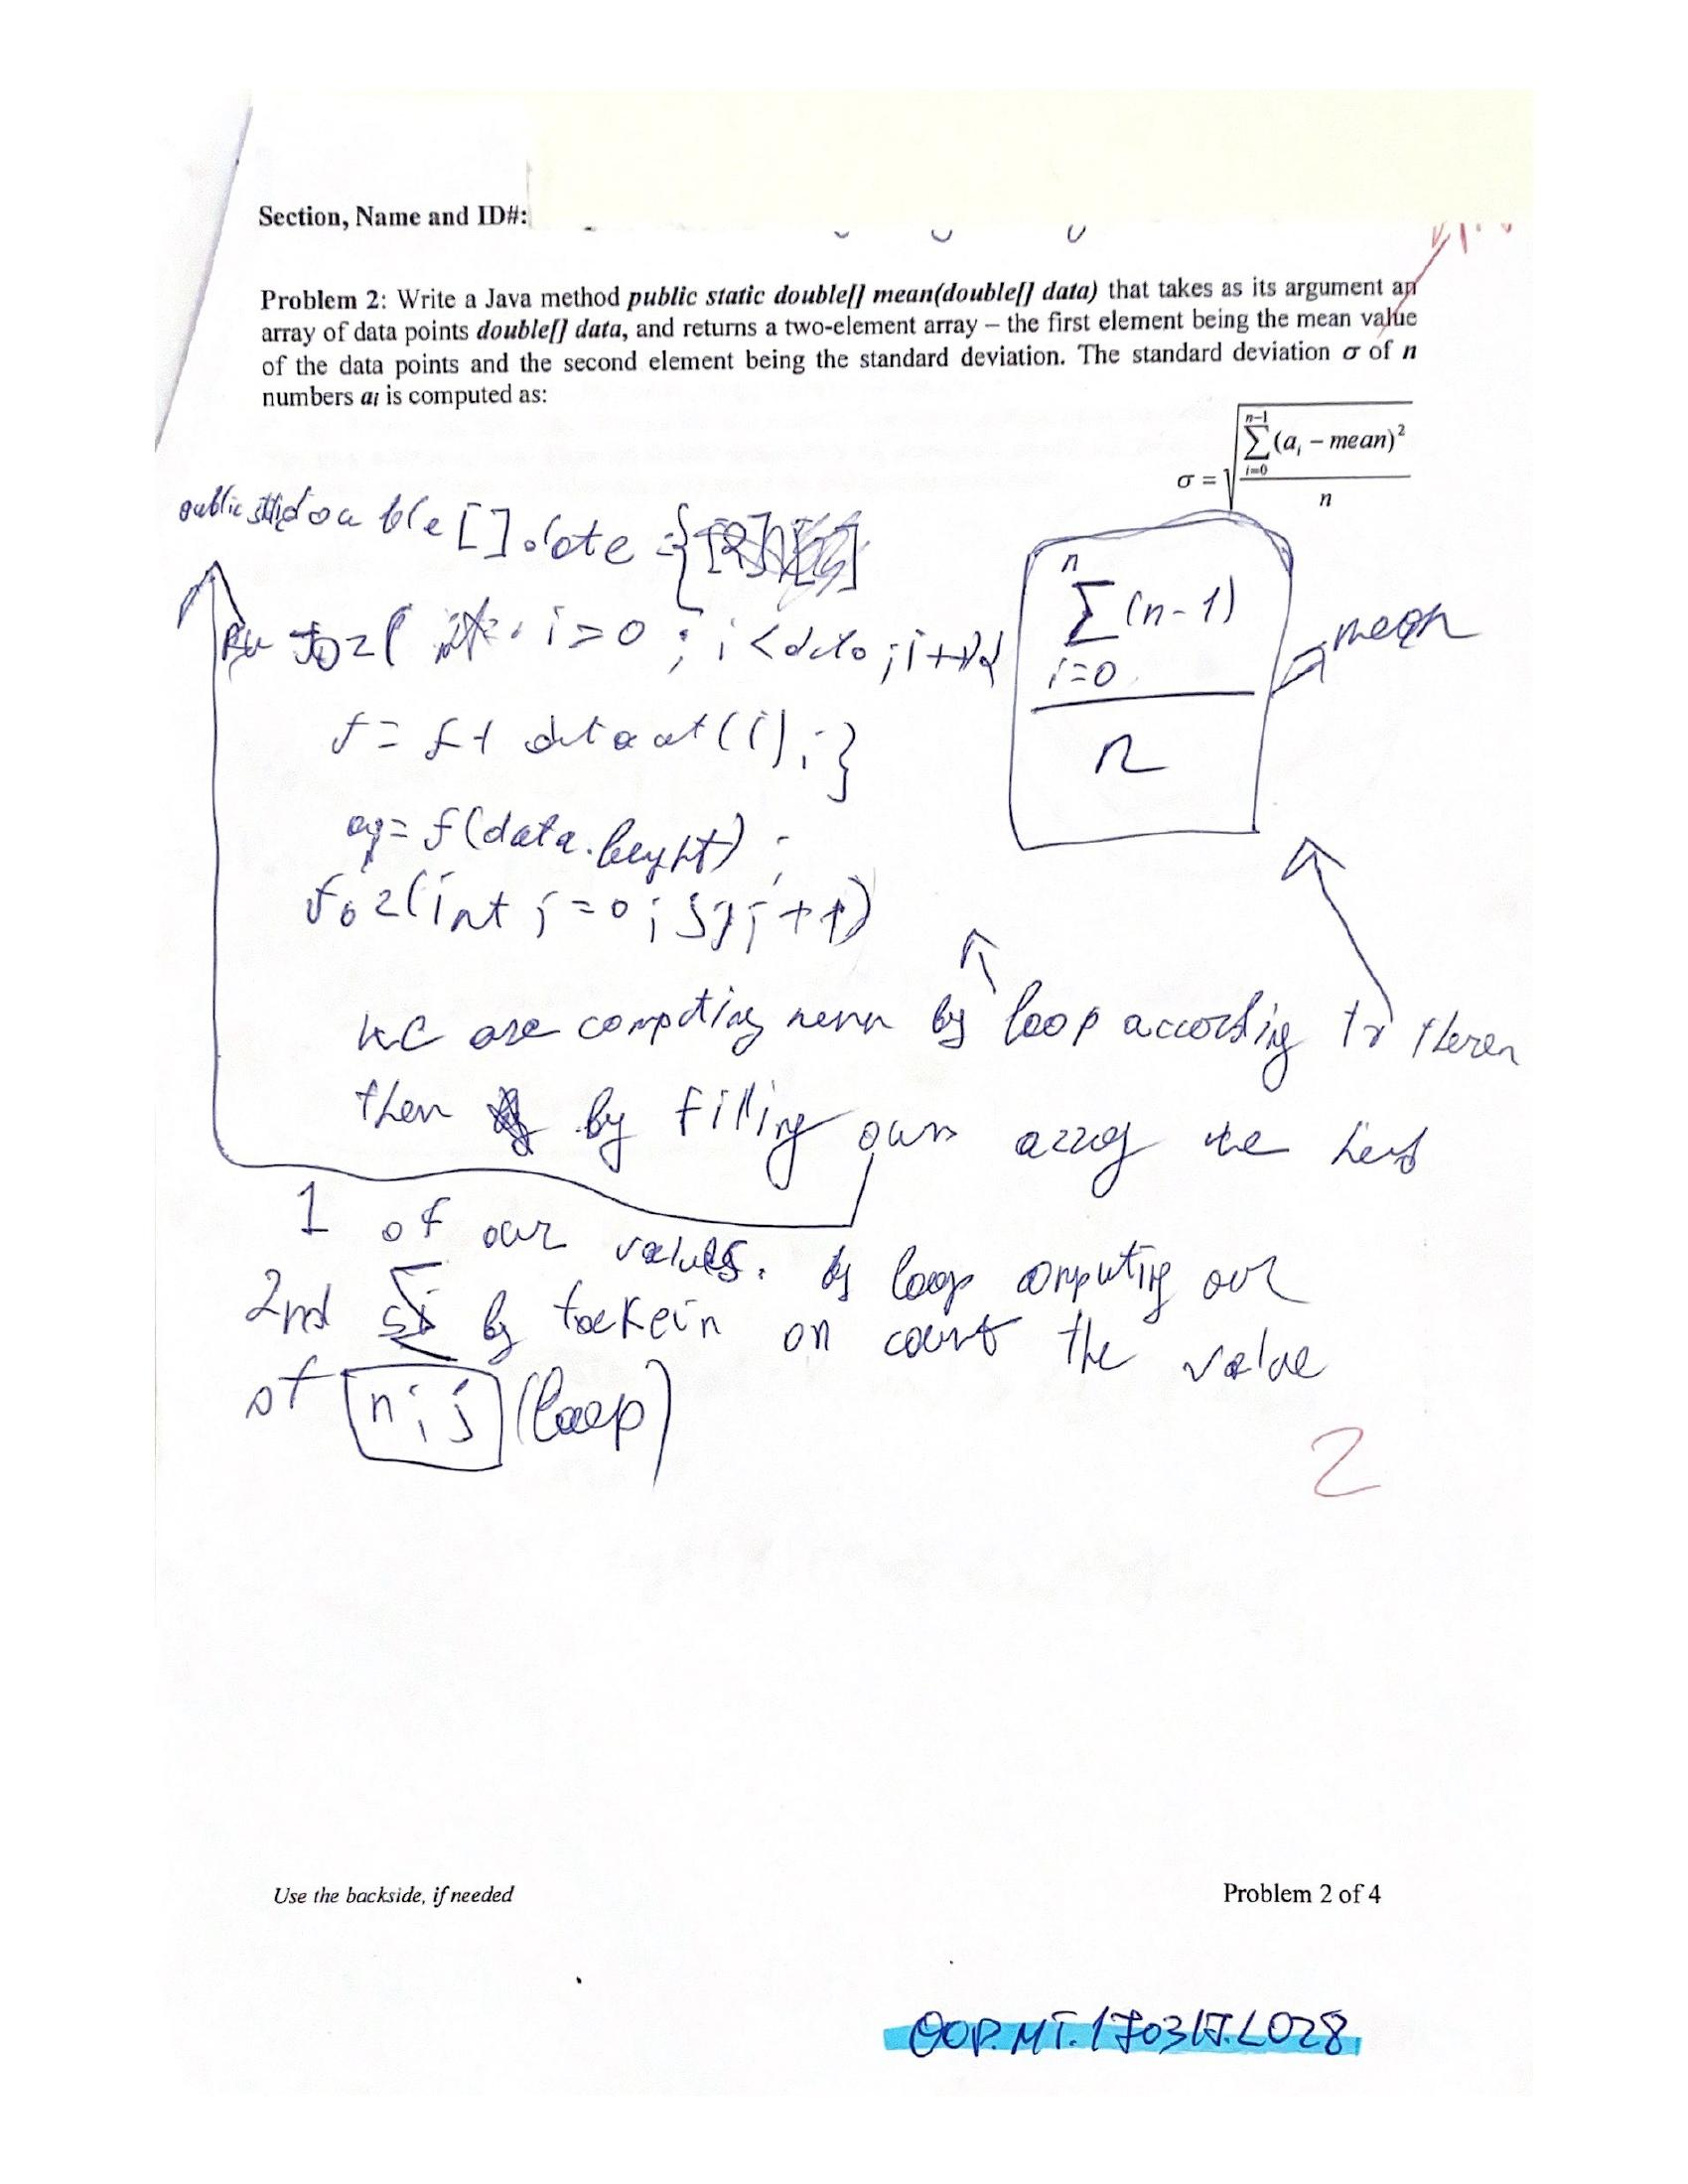 Section, Name and ID#:
Problem 2: Write a Java method public static double[] mean(double[] data) that takes as its argument an
array of data points double[] data, and returns a two-element array – the first element being the mean value
of the data points and the second element being the standard deviation. The standard deviation σ of n
numbers ai is computed as:
σ = √(∑(ai – mean)² / n) n-1 i=0
double[]
for( i=0 ; i<data ;i++){
f = f + data at(i);}
n ∑(n-1) i=0 / n
mean
= f(data.
for(int j=0; j++)
we are computing by loop according to
then by filling array the
1 of our values. by loop computing our
2nd ∑ by on count the value
of n;j (loop)
2
Use the backside, if needed
Problem 2 of 4
OOP.MT.170317.L028